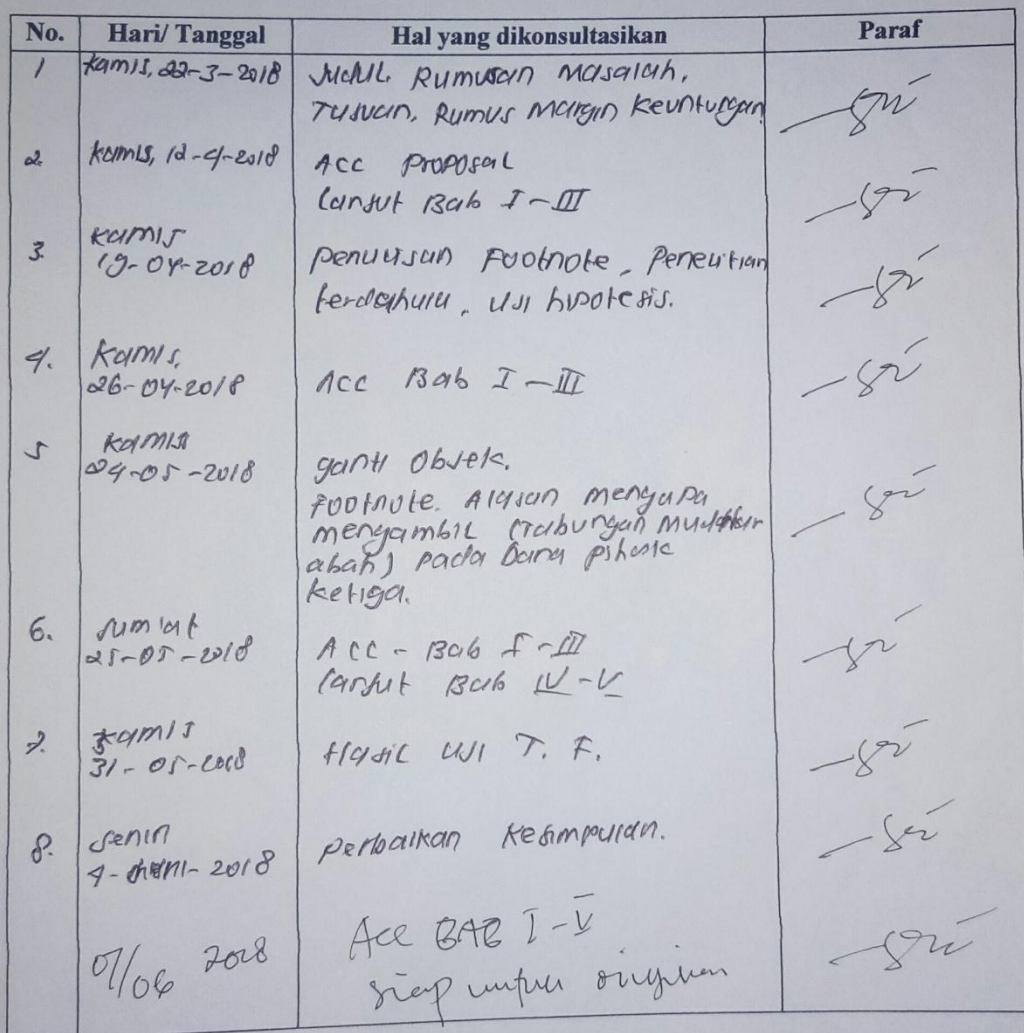 No. Hari/ Tanggal Hal yang dikonsultasikan Paraf
1 Kamis, 22-3-2018 Judul. Rumusan Masalah,
Tujuan, Rumus Margin Keuntungan
2. Kamis, 12-4-2018 Acc Proposal
lanjut Bab I - III
3. Kamis
19-04-2018 Penulisan Footnote, Penelitian
terdahulu, Uji hipotesis.
4. Kamis,
26-04-2018 Acc Bab I - III
5 Kamis
24-05-2018 ganti Objek.
Footnote. Alasan mengapa
mengambil (Tabungan Mudhar
abah) pada Dana pihak
ketiga.
6. Jum'at
25-05-2018 Acc - Bab I - III
lanjut Bab IV - V
7. Kamis
31-05-2018 Hasil Uji T. F.
8. Senin
4- -2018 perbaikan Kesimpulan.
07/06 2018 Acc BAB I - V
siap untuk diujikan